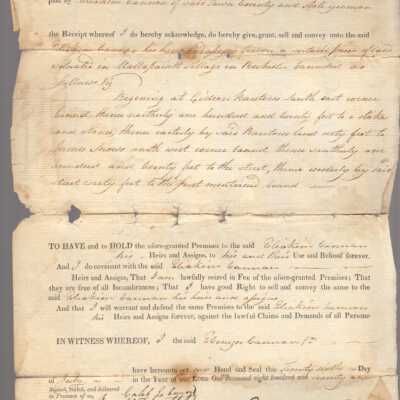 paid by Eliakim Cannan of said Town County and State yeoman
the Receipt whereof I do hereby acknowledge, do hereby give, grant, sell and convey unto the said
Eliakim Cannan his heirs and assigns forever a certain piece of land
situated in Mattapoisett village in Rochester bounded as
follows Viz
Begining at Gideon Barstows South east corner
bound thence northerly one hundred and twenty feet to a stake
and stones, thence easterly by said Barstows land sixty feet to
north west corner bound, thence southerly one
hundred and twenty feet to the street, thence westerly by said
street sixty feet to the first mentioned bound
TO HAVE and to HOLD the afore-granted Premises to the said Eliakim Cannan
his Heirs and Assigns, to his and their Use and Behoof forever.
And I do covenant with the said Eliakim Cannan
Heirs and Assigns, That I am lawfully seized in Fee of the afore-granted Premises; That
they are free of all Incumbrances; That I have good Right to sell and convey the same to the
said Eliakim Cannan his heirs and assigns
And that I will warrant and defend the same Premises to the said Eliakim Cannan
his Heirs and Assigns forever, against the lawful Claims and Demands of all Persons
IN WITNESS WHEREOF, I the said Ebenezer Cannan
have hereunto set Hand and Seal this Twenty Day
of in the Year of our Lord One thousand eight hundred and twenty
Signed, Sealed, and delivered
in Presence of us,
Caleb